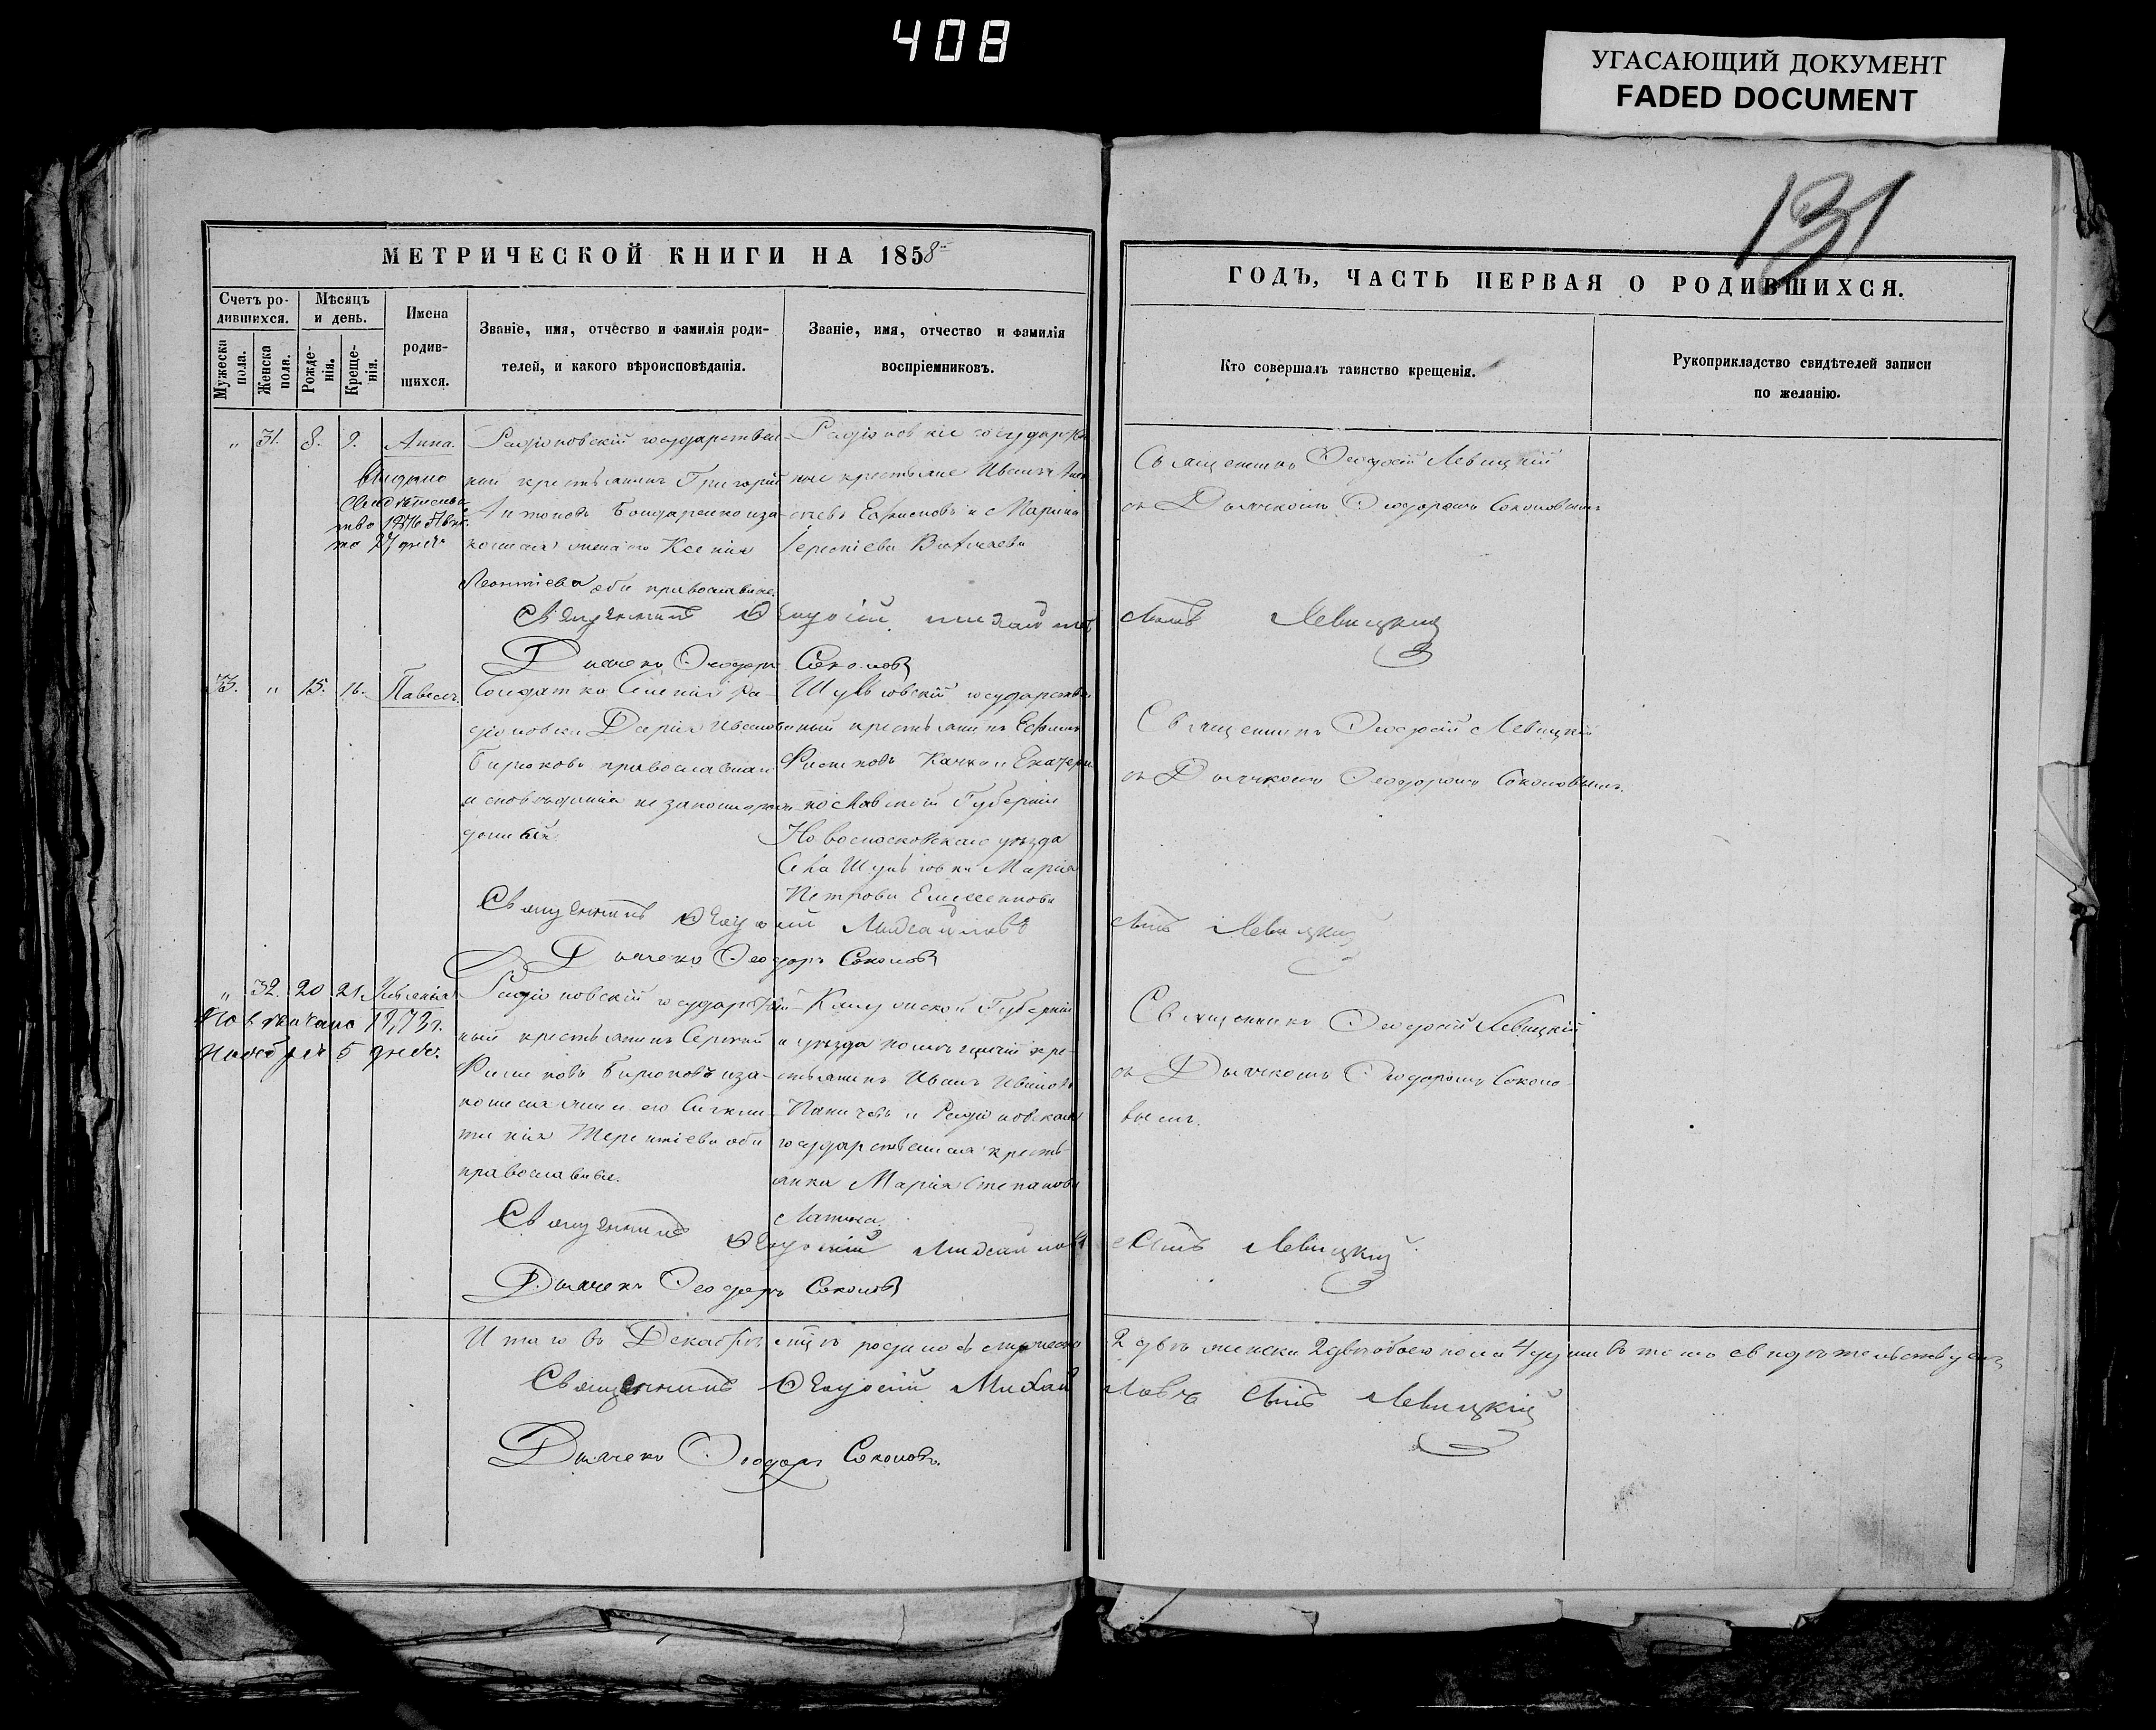 408
УГАСАЮЩИЙ ДОКУМЕНТ
FADED DOCUMENT
131
МЕТРИЧЕСКОЙ КНИГИ НА 1858
ГОДЪ, ЧАСТЬ ПЕРВАЯ О РОДИВШИХСЯ.
Счетъ ро-
дившихся.
Мужеска пола.
Женска пола.
Мѣсяцъ
и день.
Рожде-
нія.
Креще-
нія.
Имена
родив-
шихся.
Званіе, имя, отчество и фамилія роди-
телей, и какого вѣроисповѣданія.
Званіе, имя, отчество и фамилія
воспріемниковъ.
Кто совершалъ таинство крещенія.
Рукоприкладство свидѣтелей записи
по желанію.
" 31. 8. 9. Анна.
Выдано
свидѣтельс
тво 1876
27 дня
Радіоновскій государствен
ный крестьянинъ Григорій
Антоновъ Бондаренко и за-
конная жена его Ксенія
Леонтіева оба православные.
Радіоновскіе государствен
ные крестьяне Иванъ
Ефимовъ и Марина
Священникъ Ѳеодосій Левицкій
съ Дьячкомъ Ѳеодоромъ Соколовымъ
Священникъ Ѳеодосій Михайловъ
сынъ Левицкій
Дьячекъ Ѳеодоръ Соколовъ
33. " 15. 16. Павелъ.
Солдатка Селенія Ра-
діоновки Дарія Иванова
Бирюкова православнаго
исповѣданія незаконорож
денный
Шульговскій государствен
ный крестьянинъ Ефимъ
Филиповъ Качка и Екатери
нославской Губерніи
Новосмосковскаго уѣзда
Села Шульговки Марія
Петрова
Священникъ Ѳеодосій Левицкій
съ Дьячкомъ Ѳеодоромъ Соколовымъ.
Священникъ Ѳеодосій Михайловъ
сынъ Левицкій
Дьячекъ Ѳеодоръ Соколовъ
" 32. 20 21. Іуліанія
Повѣнчана 1873 г.
Ноября 5 дня.
Радіоновскій государствен
ный крестьянинъ Сергій
Филиповъ Бирюковъ и за-
конная жена его Синкли-
тикія Терентіева оба
православные.
Калужской Губерніи
и уѣзда помѣщичій кре-
стьянинъ Иванъ Ивановъ
и Радіоновская
государственная кресть-
янка Марія Степанова
Священникъ Ѳеодосій Левицкій
съ Дьячкомъ Ѳеодоромъ Соколо-
вымъ.
Священникъ Ѳеодосій Михайловъ
сынъ Левицкій
Дьячекъ Ѳеодоръ Соколовъ
Итого въ Декабрѣ м-цѣ родилось мужеска
2 двѣ женска 2 двѣ обоего пола 4 души въ томъ свидѣтельствуемъ
Священникъ Ѳеодосій Михай
ловъ сынъ Левицкій
Дьячекъ Ѳеодоръ Соколовъ.